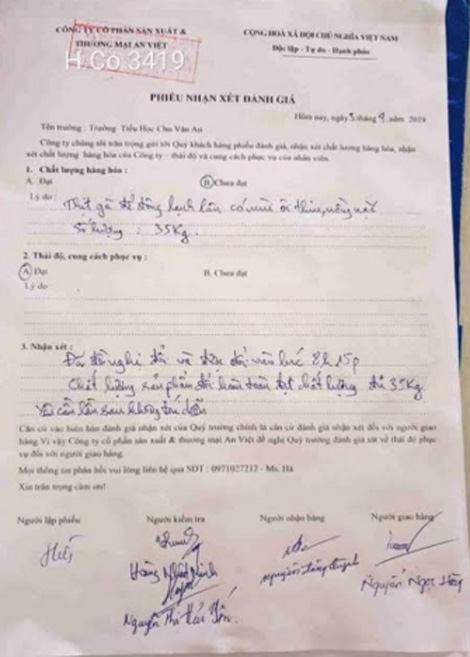 CÔNG TY CỔ PHẦN SẢN XUẤT &
THƯƠNG MẠI AN VIỆT
H.Co 3419
CỘNG HOÀ XÃ HỘI CHỦ NGHĨA VIỆT NAM
Độc lập - Tự do - Hạnh phúc
PHIẾU NHẬN XÉT ĐÁNH GIÁ
Hôm nay, ngày 3 tháng 9 năm 2019
Tên trường : Trường Tiểu Học Chu Văn An
Công ty chúng tôi trân trọng gửi tới Quý khách hàng phiếu đánh giá, nhận xét chất lượng hàng hóa, nhận
xét chất lượng hàng hóa của Công ty - thái độ và cung cách phục vụ của nhân viên.
1. Chất lượng hàng hóa :
A. Đạt
B Chưa đạt
Lý do :
Thịt gà để đông lạnh lâu có mùi ôi thiu, nồng nặc
Số lượng : 35Kg.
2. Thái độ, cung cách phục vụ :
A Đạt
B. Chưa đạt
Lý do
3. Nhận xét :
Đã đề nghị đổi và được đổi vào lúc 8h15p
Chất lượng sản phẩm đổi hoàn toàn đạt chất lượng đủ 35Kg
Yêu cầu lần sau không tái diễn
Căn cứ vào biên bản đánh giá nhận xét của Quý trường chính là căn cứ đánh giá nhận xét đối với người giao
hàng. Vì vậy Công ty cổ phần sản xuất & thương mại An Việt đề nghị Quý trường đánh giá sát về thái độ phục
vụ đối với người giao hàng.
Mọi thông tin phản hồi vui lòng liên hệ qua SĐT : 0971027212 - Ms. Hà
Xin trân trọng cảm ơn!
Người lập phiếu
Người kiểm tra
Người nhận hàng
Người giao hàng
Hoàng
Nguyễn Thị Hải Yến
Nguyễn
Nguyễn Ngọc